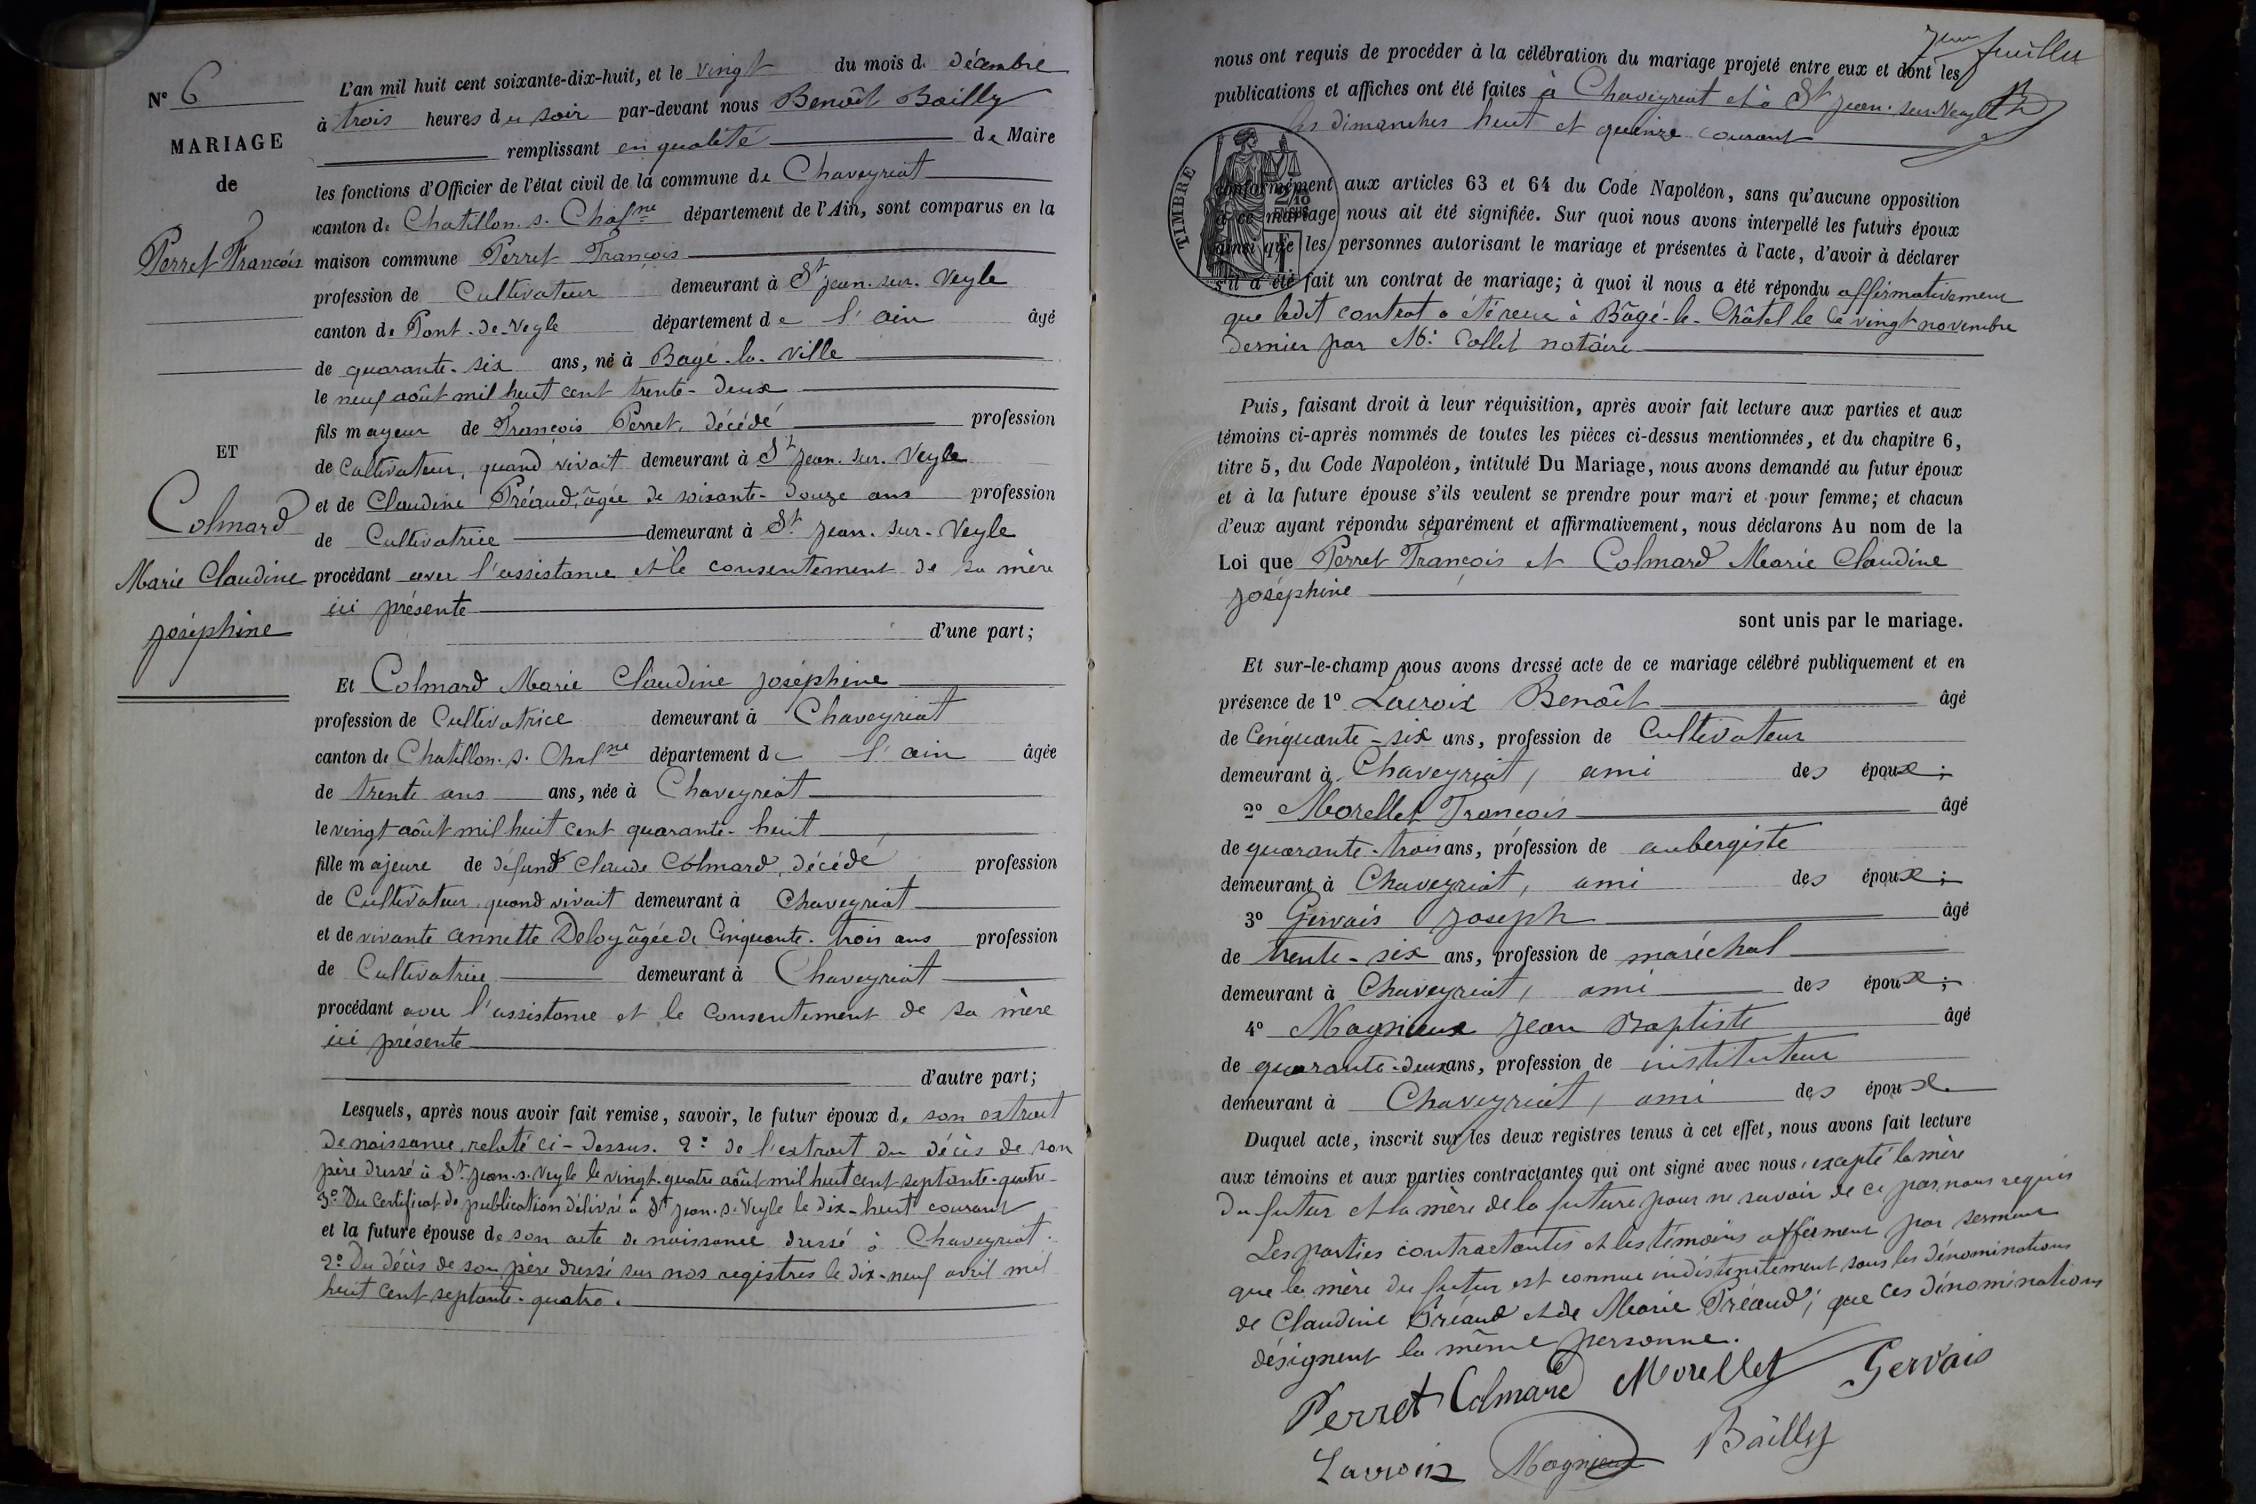 N° 6
MARIAGE
de
Perret François
ET
Colmard
Marie Claudine
Joséphine
L'an mil huit cent soixante-dix-huit, et le vingt du mois de décembre
à trois heures du soir par-devant nous Benoît Bailly
remplissant en qualité de Maire
les fonctions d'Officier de l'état civil de la commune de Chaveyriat
canton de Chatillon-s-Chalne département de l'Ain, sont comparus en la
maison commune Perret François
profession de Cultivateur demeurant à St Jean-sur-Veyle
canton de Pont-de-Veyle département de l'ain âgé
de quarante-six ans, né à Bagé-la-Ville
le neuf août mil huit cent trente-deux
fils mayeur de François Perret, décédé profession
de Cultivateur, quand vivait demeurant à St Jean-sur-Veyle
et de Claudine Préaud, âgée de soixante-douze ans profession
de Cultivatrice demeurant à St Jean-sur-Veyle
procédant avec l'assistance et le consentement de sa mère
ici présente
d'une part;
Et Colmard Marie Claudine Joséphine
profession de Cultivatrice demeurant à Chaveyriat
canton de Chatillon-s-Chalne département de l'ain âgée
de trente ans ans, née à Chaveyriat
le vingt août mil huit cent quarante-huit
fille majeure de défunt Claude Colmard, décédé profession
de Cultivateur, quand vivait demeurant à Chaveyriat
et de vivante Annette Deloy âgée de Cinquante-trois ans profession
de Cultivatrice demeurant à Chaveyriat
procédant avec l'assistance et le consentement de sa mère
ici présente
d'autre part;
Lesquels, après nous avoir fait remise, savoir, le futur époux de son extrait
de naissance, relaté ci-dessus. 2° de l'extrait du décès de son
père dressé à St Jean-s-Veyle le vingt-quatre août mil huit cent septante-quatre
3° Du Certificat de publication délivré à St Jean-s-Veyle le dix-huit courant
et la future épouse de son acte de naissance dressé à Chaveyriat.
2° Du décès de son père dressé sur nos registres le dix-neuf avril mil
huit cent septante-quatre.
7eme feuillet
nous ont requis de procéder à la célébration du mariage projeté entre eux et dont les
publications et affiches ont été faites à Chaveyriat et à St Jean-sur-Veyle
les dimanches huit et quinze courant
TIMBRE
conformément aux articles 63 et 64 du Code Napoléon, sans qu'aucune opposition
à ce mariage nous ait été signifiée. Sur quoi nous avons interpellé les futurs époux
ainsi que les personnes autorisant le mariage et présentes à l'acte, d'avoir à déclarer
s'il a été fait un contrat de mariage; à quoi il nous a été répondu affirmativement
que ledit contrat a été reçu à Bâgé-le-Châtel le le vingt novembre
dernier par Me Collet notaire
Puis, faisant droit à leur réquisition, après avoir fait lecture aux parties et aux
témoins ci-après nommés de toutes les pièces ci-dessus mentionnées, et du chapitre 6,
titre 5, du Code Napoléon, intitulé Du Mariage, nous avons demandé au futur époux
et à la future épouse s'ils veulent se prendre pour mari et pour femme; et chacun
d'eux ayant répondu séparément et affirmativement, nous déclarons Au nom de la
Loi que Perret François et Colmard Marie Claudine
Joséphine
sont unis par le mariage.
Et sur-le-champ nous avons dressé acte de ce mariage célébré publiquement et en
présence de 1° Lacroix Benoît âgé
de Cinquante-six ans, profession de Cultivateur
demeurant à Chaveyriat, ami des époux;
2° Morellet François âgé
de quarante-trois ans, profession de aubergiste
demeurant à Chaveyriat, ami des époux;
3° Gervais Joseph âgé
de trente-six ans, profession de maréchal
demeurant à Chaveyriat, ami des époux;
4° Magnieux Jean Baptiste âgé
de quarante-deux ans, profession de instituteur
demeurant à Chaveyriat, ami des époux.
Duquel acte, inscrit sur les deux registres tenus à cet effet, nous avons fait lecture
aux témoins et aux parties contractantes qui ont signé avec nous, excepté la mère
du futur et la mère de la future pour ne savoir de ce par nous requis
Les parties contractantes et les témoins affirment par serment
que la mère du futur est connue indistinctement sous les dénominations
de Claudine Préaud et de Marie Préaud; que ces dénominations
désignent la même personne.
Perret Colmard Morellet Gervais
Lacroix Magnieux Bailly